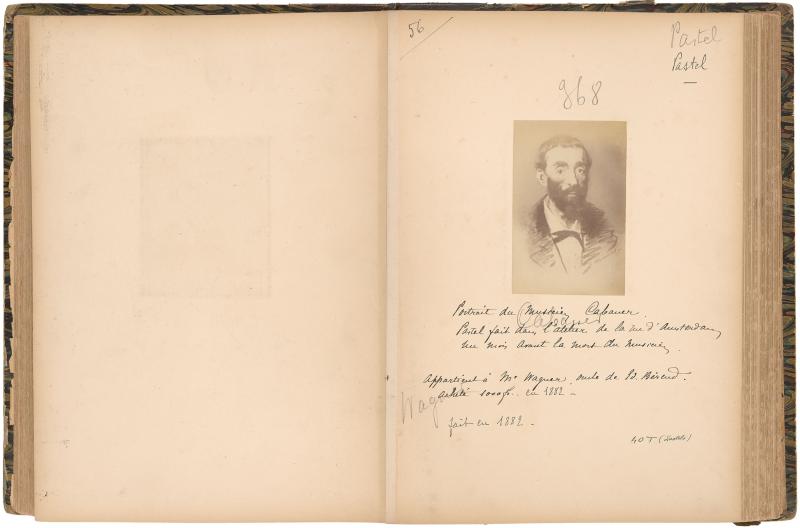 56
Pastel
Pastel
868
Portrait du Musicien Cabaner.
Cabaner
Pastel fait dans l'atelier de la rue d'Amsterdam,
un mois avant la mort du musicien.
Appartient à Mr Wagner, oncle de Ed. Bérend.
acheté 1000f. en 1882 -
Wag
fait en 1882 -
40 T